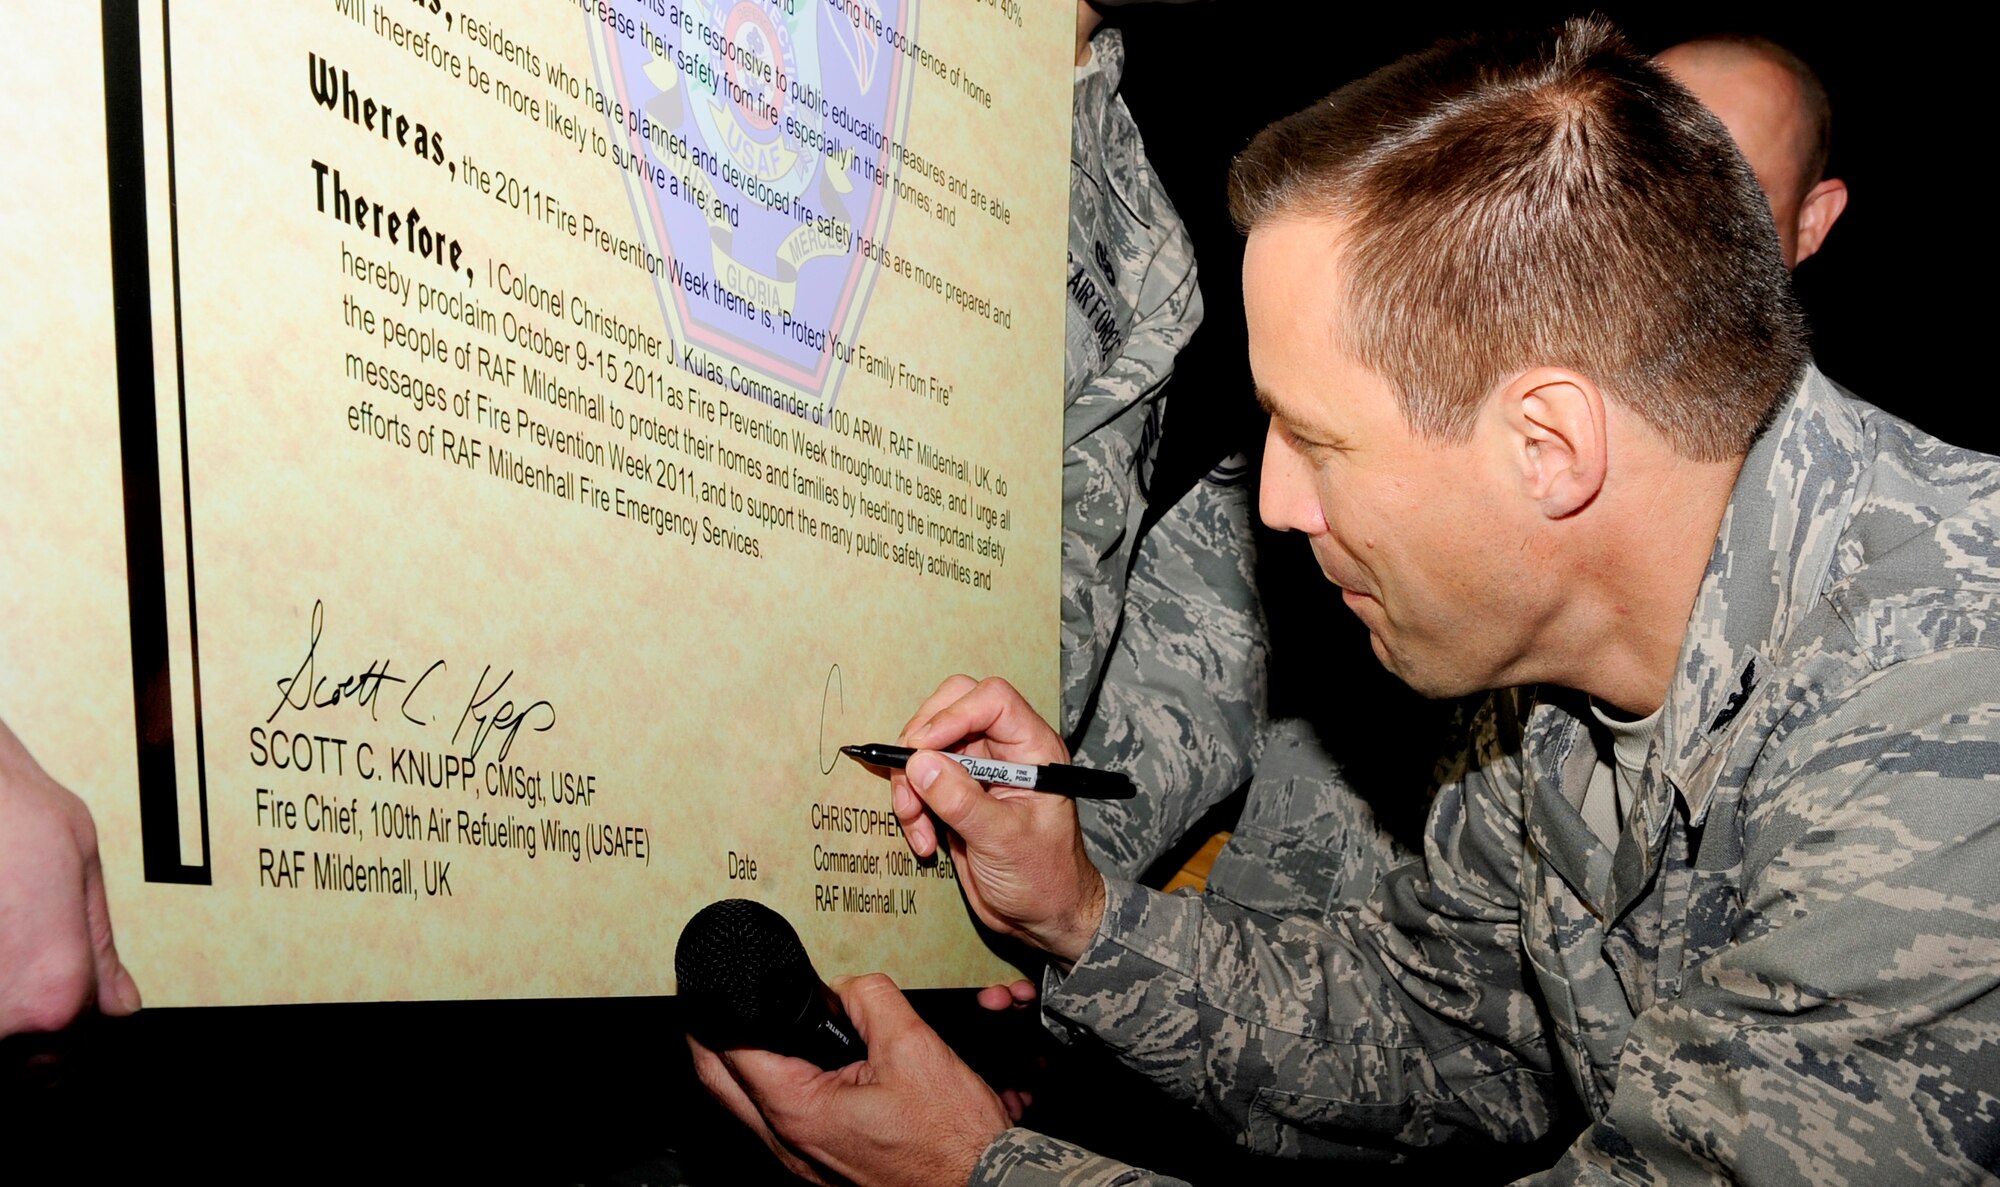 for 40%
reducing the occurrence of home
and
residents are responsive to public education measures and are able
increase their safety from fire, especially in their homes; and
residents who have planned and developed fire safety habits are more prepared and
will therefore be more likely to survive a fire; and
Whereas, the 2011 Fire Prevention Week theme is, "Protect Your Family From Fire"
Therefore, I Colonel Christopher J. Kulas, Commander of 100 ARW, RAF Mildenhall, UK, do
hereby proclaim October 9-15 2011 as Fire Prevention Week throughout the base, and I urge all
the people of RAF Mildenhall to protect their homes and families by heeding the important safety
messages of Fire Prevention Week 2011, and to support the many public safety activities and
efforts of RAF Mildenhall Fire Emergency Services.
USAF
GLORIA
Scott C. Knupp
SCOTT C. KNUPP, CMSgt, USAF
Fire Chief, 100th Air Refueling Wing (USAFE)
RAF Mildenhall, UK
Date
C
CHRISTOPHER
Commander, 100th Air Refu
RAF Mildenhall, UK
Sharpie FINE POINT
TRANTEC
AIR FORCE